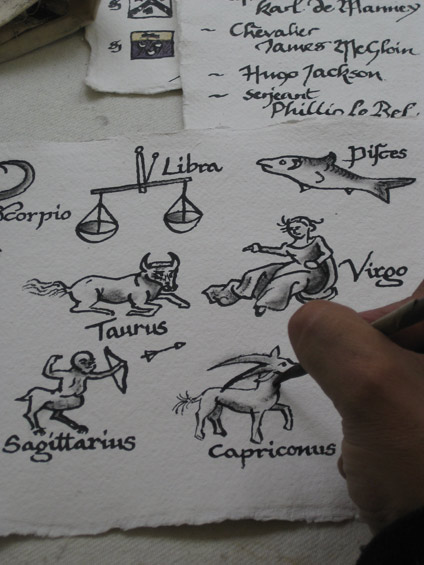 Karl de Manney
~ Chevalier
James McGloin
~ Hugo Jackson
~ serjeant
Phillis lo Bel.
Scorpio
Libra
Pisces
Taurus
Virgo
Sagittarius
Capriconus